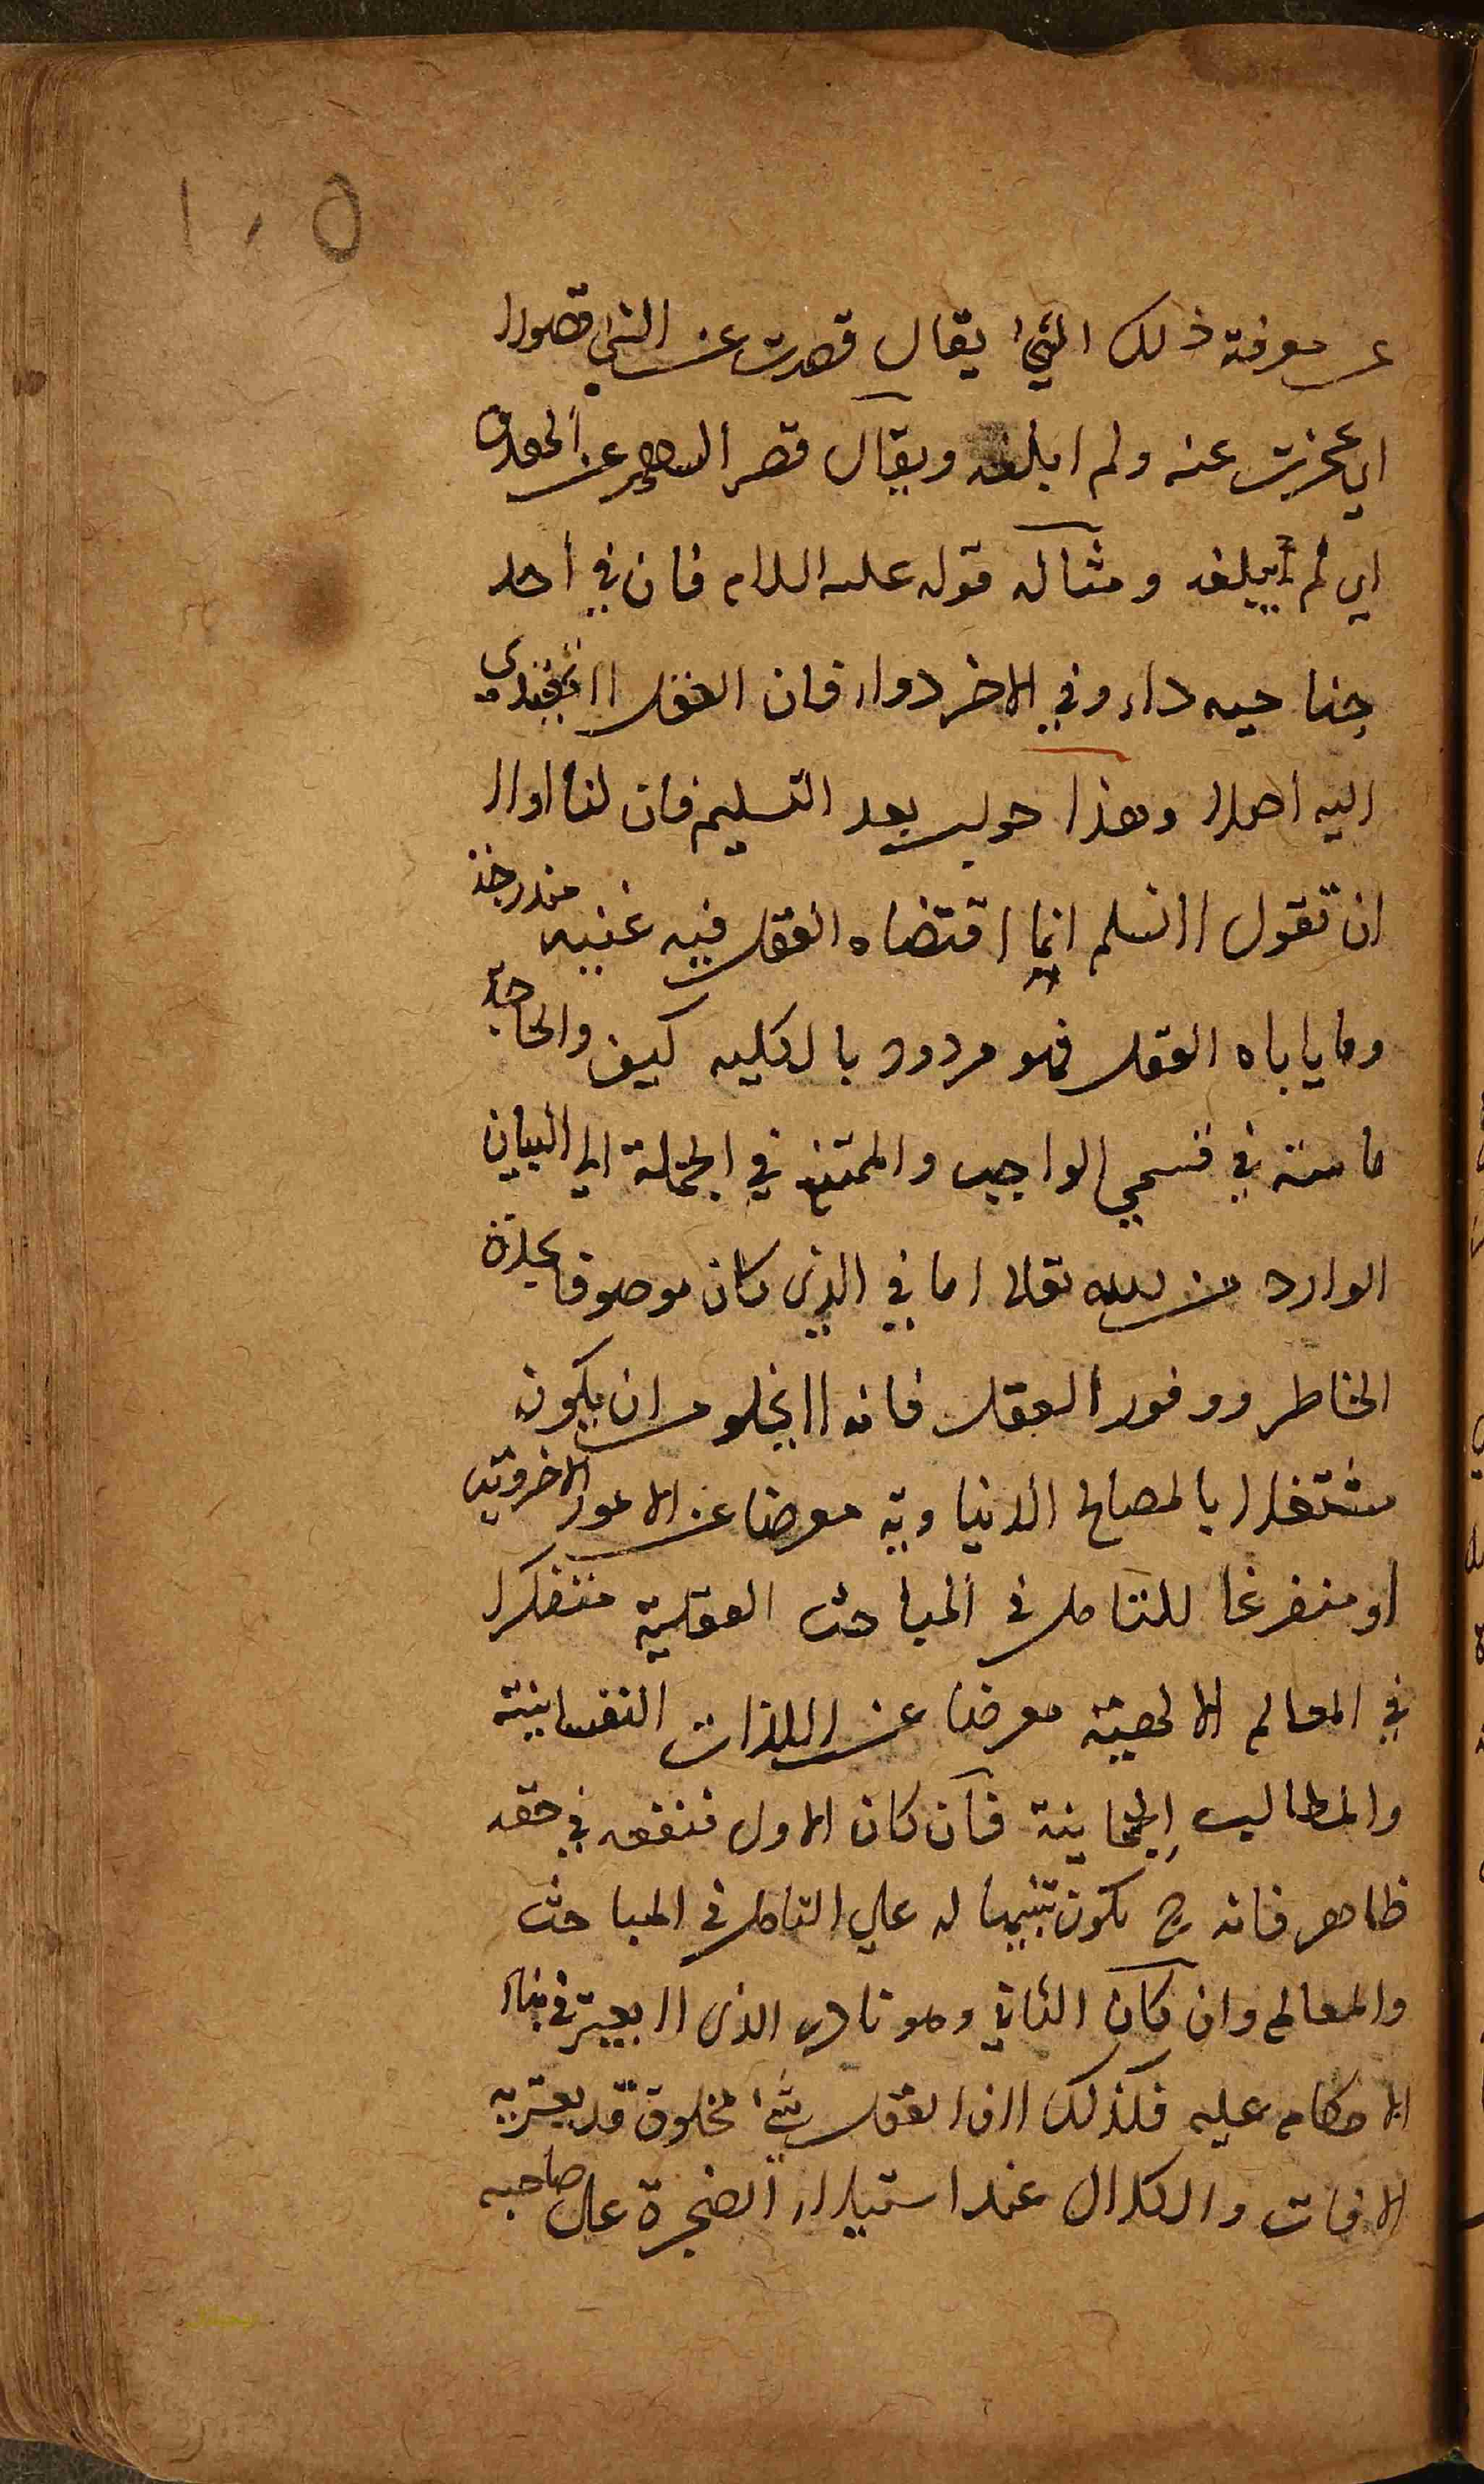 ١٠٥
عن معرفة ذلك الشئ يقال قصرت عن الشئ قصورا
اي عجزت عنه ولم ابلغه ويقال قصر السهم عن الهدف
اي لم يبلغه ومثاله قوله عليه السلام فان في احد
جناحيه داء وفي الاخر دواء فان العقل لا يهتدي
اليه اصلا وهذا جواب بعد التسليم فان لنا اولا
ان نقول لا نسلم انما اقتضاه العقل فيه غنيه مندرجة
وما ياباه العقل فهو مردود بالكليه كيف والحاجة
ماسة في قسمي الواجب والممتنع في الجملة الي البيان
الوارد من الله تعالى اما في الذي كان موصوفا بحدة
الخاطر ووفور العقل فانه لا يخلو من ان يكون
مشتغلا بالمصالح الدنياوية معرضا عن الامور الاخروية
او متفرغا للتامل في المباحث العقلية متفكرا
في المعالم الالهية معرضا عن اللذات النفسانية
والمطالب الجسمانية فان كان الاول فنفعه في حقه
ظاهر فانه ح يكون تنبيها له علي التامل في المباحث
والمعالم وان كان الثاني وهو نادر الذي لا يعتبر في بناء
الاحكام عليه فكذلك لان العقل شئ مخلوق قد يعتريه
الافات والكلال عند استيلاء الضجرة على صاحبه